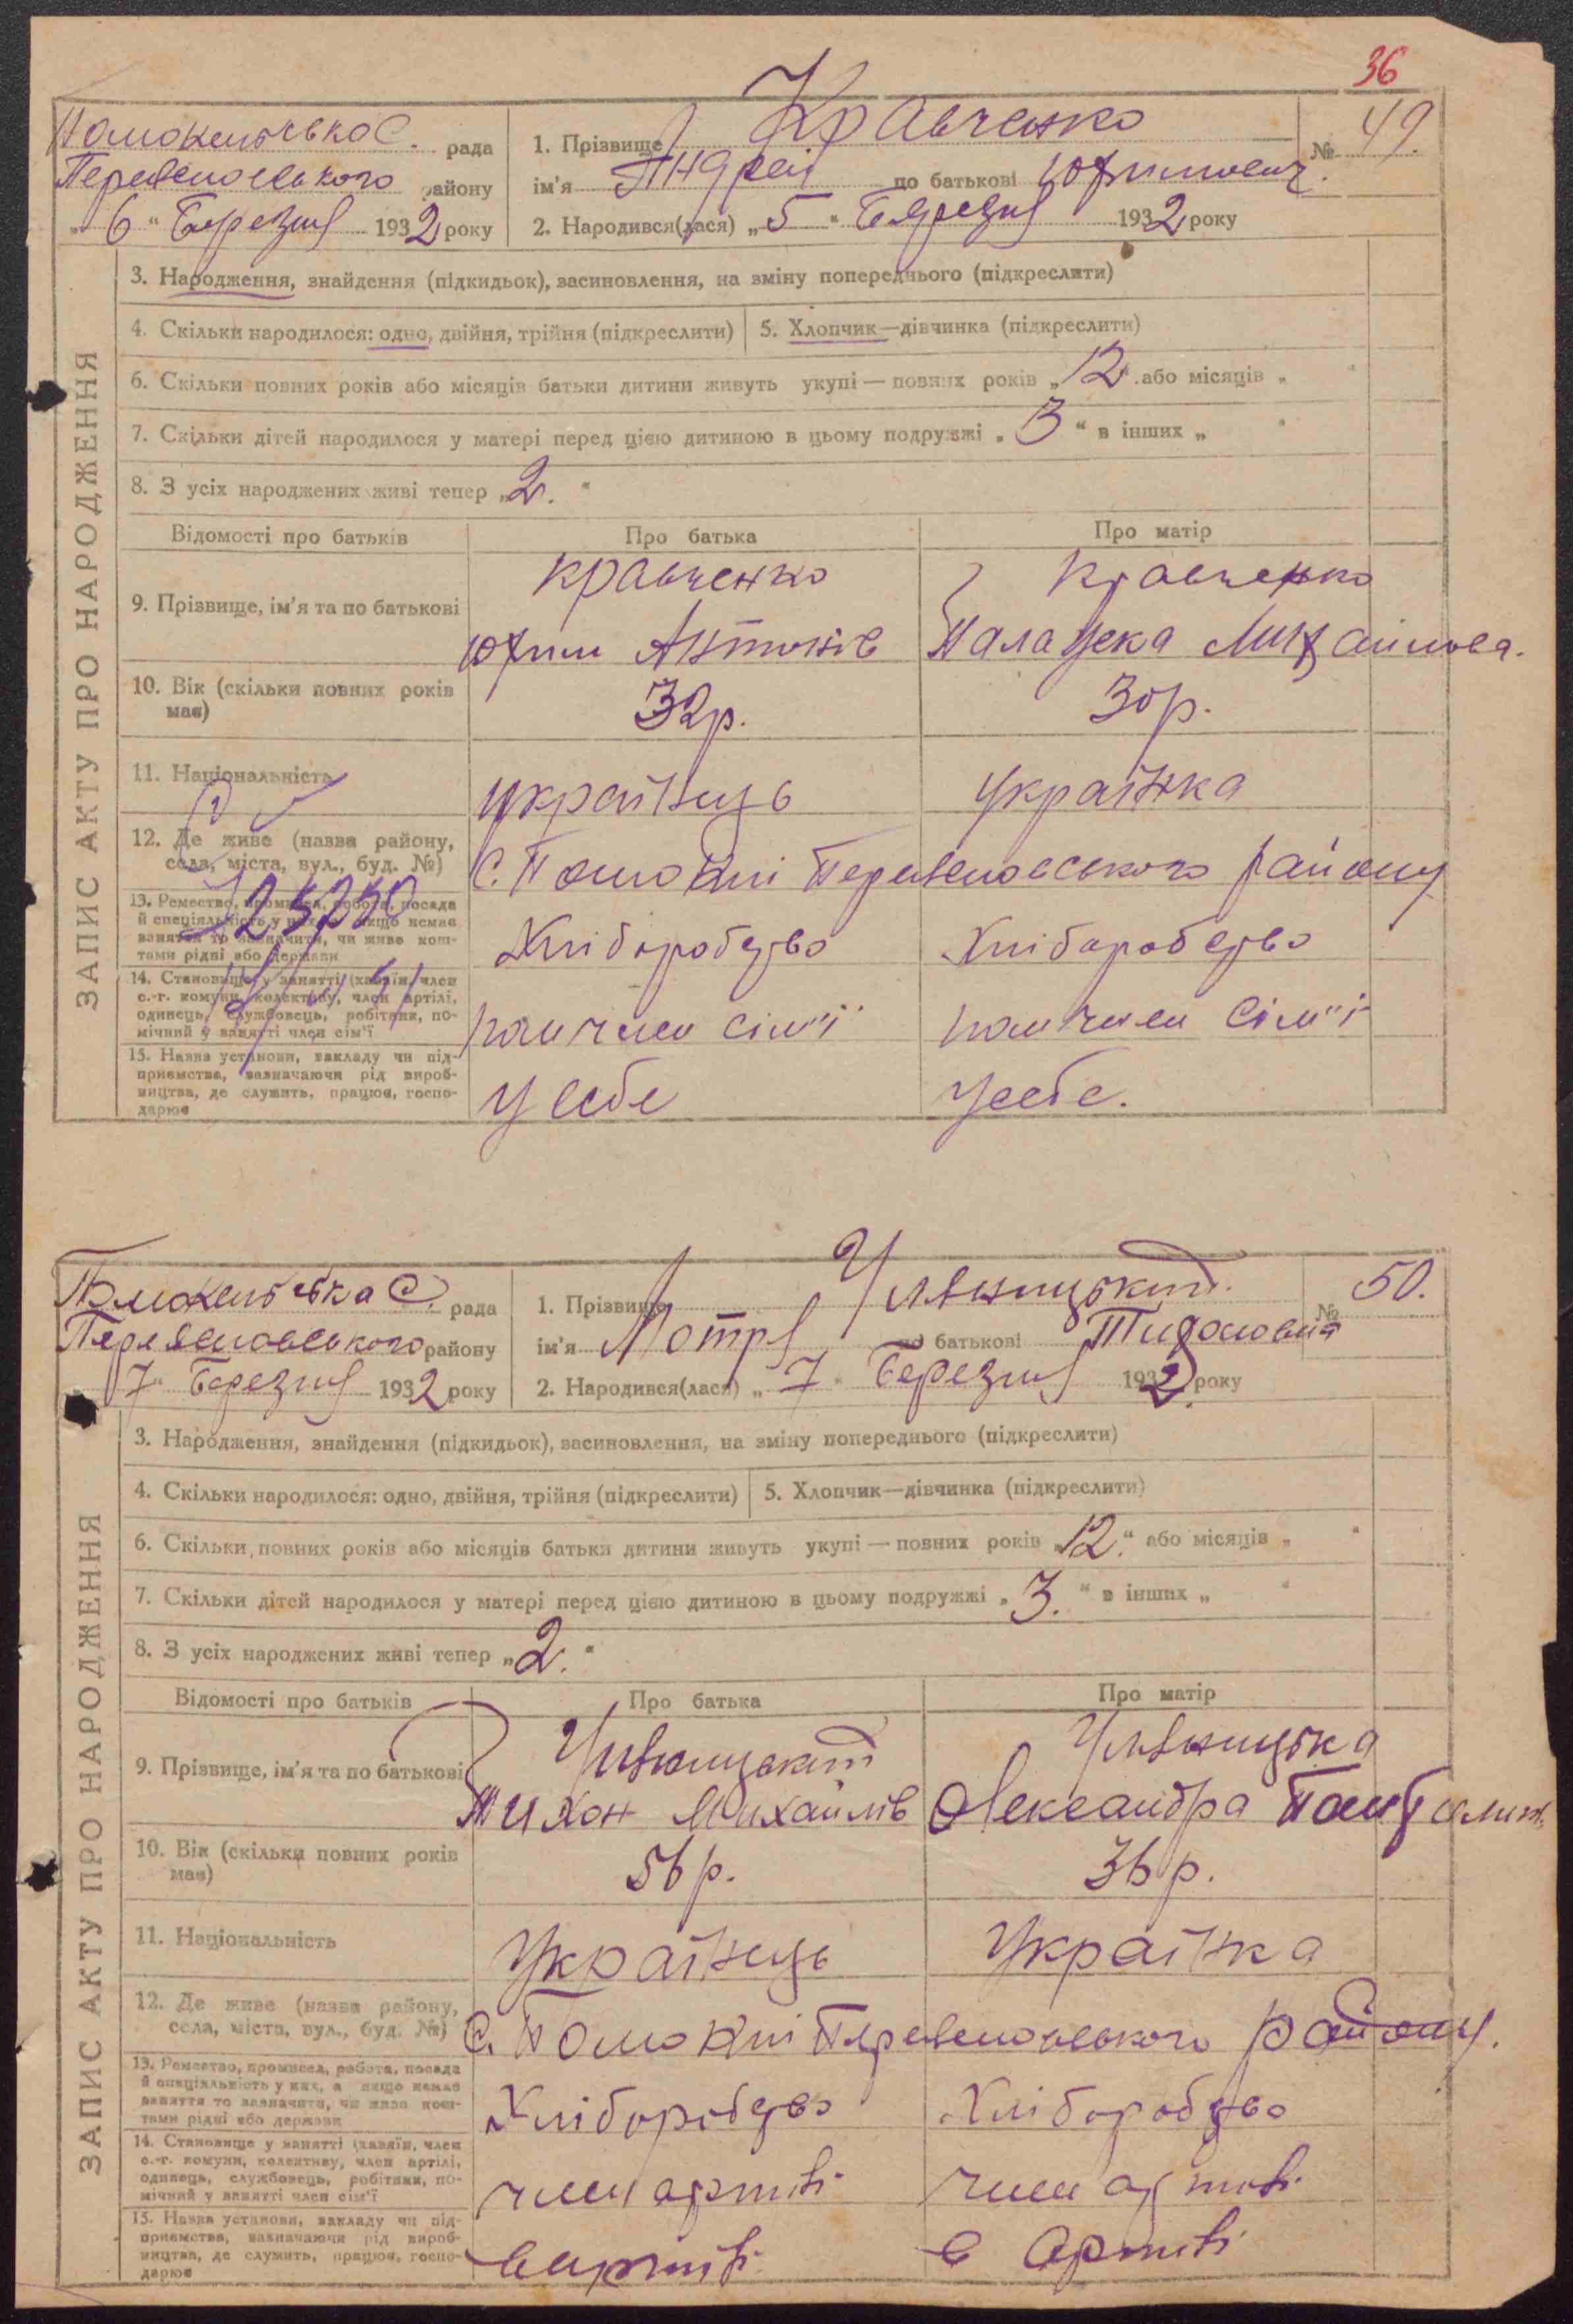 36
Помокельська С. рада
району
"6" Березня 1932 року
1. Прізвище Кравченко
№ 49.
ім'я Андрей по батькові Юхимович.
2. Народився(лася) „5" Березня 1932 року
ЗАПИС АКТУ ПРО НАРОДЖЕННЯ
3. Народження, знайдення (підкидьок), засиновлення, на зміну попереднього (підкреслити)
4. Скільки народилося: одно, двійня, трійня (підкреслити)
5. Хлопчик—дівчинка (підкреслити)
6. Скільки повних років або місяців батьки дитини живуть укупі — повних років „12". або місяців „ "
7. Скільки дітей народилося у матері перед цією дитиною в цьому подружжі „3" в інших „ "
8. З усіх народжених живі тепер „2."
Відомості про батьків
Про батька
Про матір
9. Прізвище, ім'я та по батькові
Кравченко
Юхим Антонів
Кравченко
Палажка Михайлова.
10. Вік (скільки повних років
має)
32р.
30р.
11. Національність
українець
українка
12. Де живе (назва району,
села, міста, вул., буд. №)
С. району
13. Ремество, промисел, робота, посада
й спеціяльність у них, а якщо немає
заняття то зазначити, чи живе кош-
тами рідні або держави
Хліборобство
Хліборобство
14. Становище у занятті (хазяїн, член
с.-г. комуни, колективу, член артілі,
одинець, службовець, робітник, по-
мічний у занятті член сім'ї
член сім'ї
член сім'ї
15. Назва установи, закладу чи під-
приємства, зазначаючи рід вироб-
ництва, де служить, працює, госпо-
дарює
У себе
У себе.
С. рада
району
"7" Березня 1932 року
1. Прізвище
№ 50.
ім'я Мотря по батькові Тихоновна
2. Народився(лася) „7" Березня 1932 року
ЗАПИС АКТУ ПРО НАРОДЖЕННЯ
3. Народження, знайдення (підкидьок), засиновлення, на зміну попереднього (підкреслити)
4. Скільки народилося: одно, двійня, трійня (підкреслити)
5. Хлопчик—дівчинка (підкреслити)
6. Скільки повних років або місяців батьки дитини живуть укупі — повних років „12." або місяців „ "
7. Скільки дітей народилося у матері перед цією дитиною в цьому подружжі „3." в інших „ "
8. З усіх народжених живі тепер „2."
Відомості про батьків
Про батька
Про матір
9. Прізвище, ім'я та по батькові
Тихон Михайлів
Олександра
10. Вік (скільки повних років
має)
56р.
36р.
11. Національність
Українець
Українка
12. Де живе (назва району,
села, міста, вул., буд. №)
С. району.
13. Ремество, промисел, робота, посада
й спеціяльність у них, а якщо немає
заняття то зазначити, чи живе кош-
тами рідні або держави
Хліборобство
Хліборобство
14. Становище у занятті (хазяїн, член
с.-г. комуни, колективу, член артілі,
одинець, службовець, робітник, по-
мічний у занятті член сім'ї
член артілі
член артілі
15. Назва установи, закладу чи під-
приємства, зазначаючи рід вироб-
ництва, де служить, працює, госпо-
дарює
в артілі
в Артілі